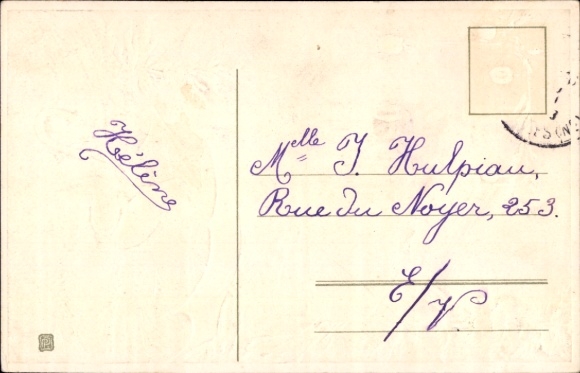 Hélène
Mlle J. Hulpiau,
Rue du Noyer, 253.
E/V